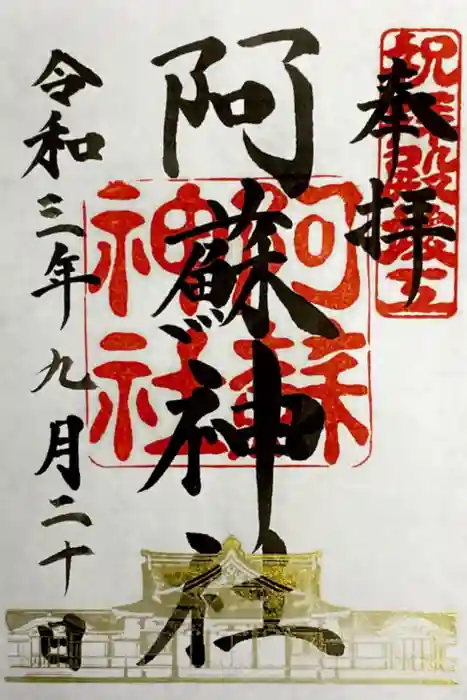 祝拝殿竣工
奉拝
阿蘇神社
阿蘇
神社
令和三年九月二十日